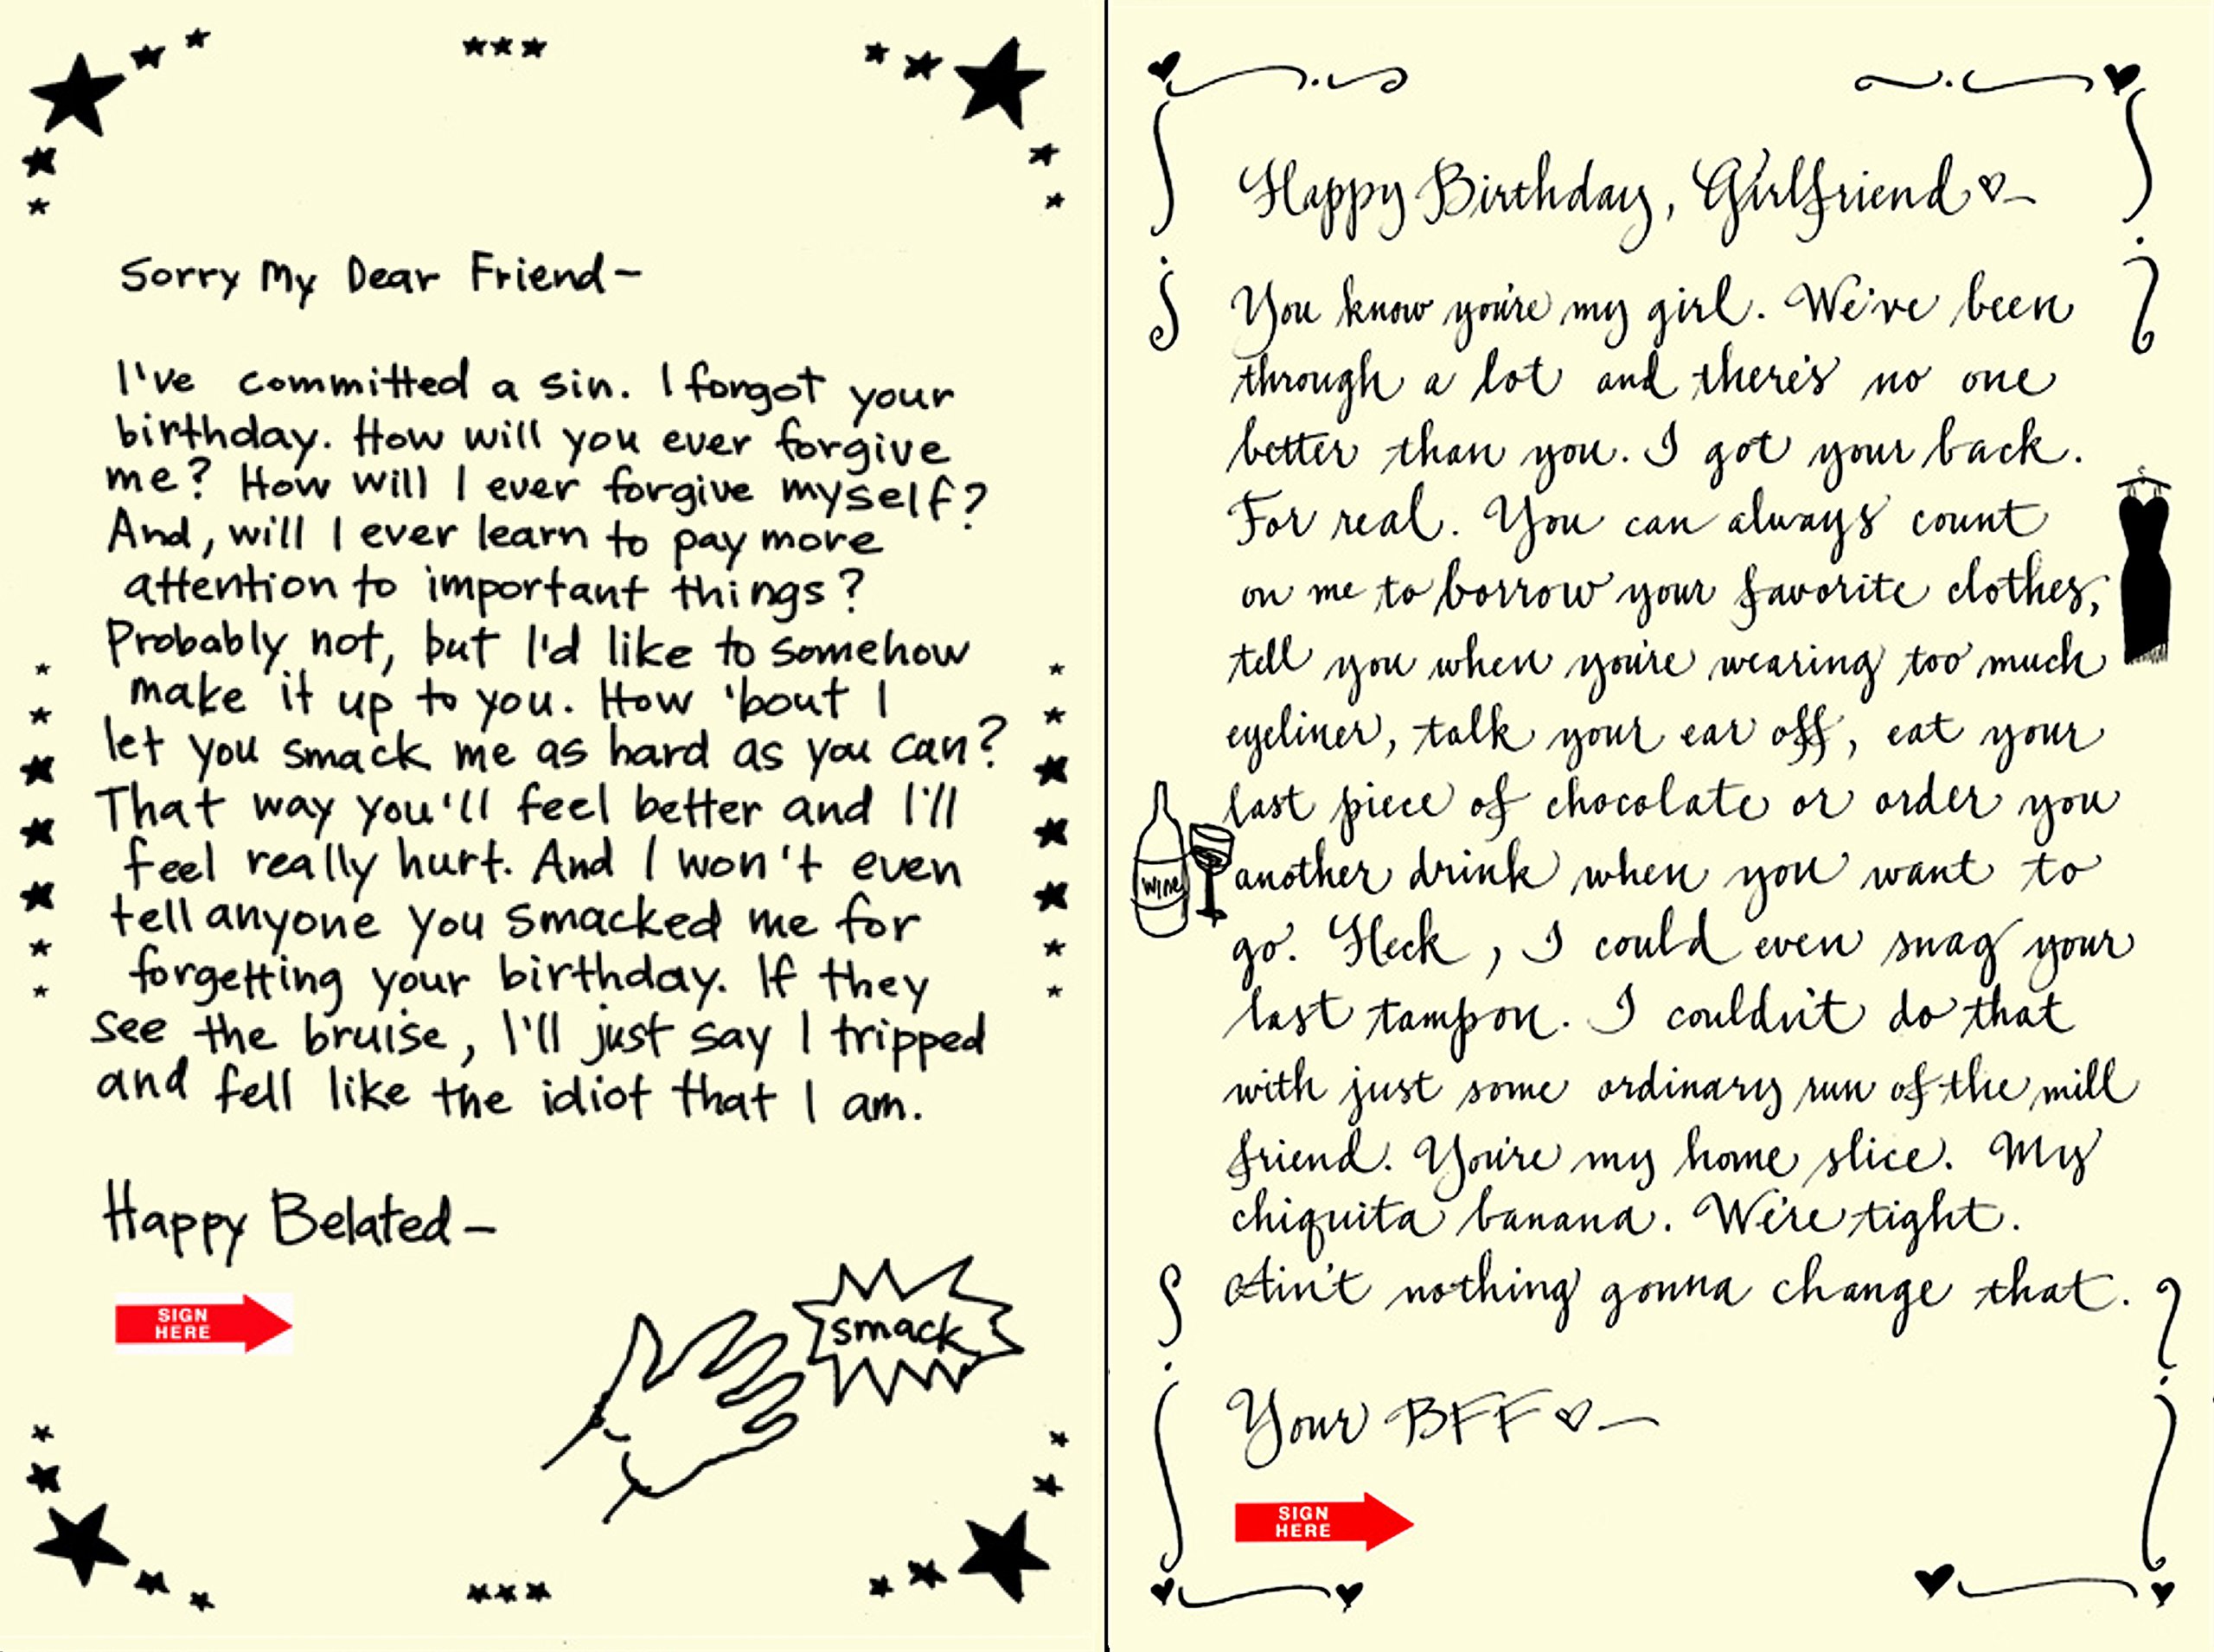 Sorry My Dear Friend-
I've committed a sin. I forgot your
birthday. How will you ever forgive
me? How will I ever forgive myself?
And, will I ever learn to pay more
attention to important things?
Probably not, but I'd like to somehow
make it up to you. How 'bout I
let you smack me as hard as you can?
That way you'll feel better and I'll
feel really hurt. And I won't even
tell anyone you smacked me for
forgetting your birthday. If they
see the bruise, I'll just say I tripped
and fell like the idiot that I am.
Happy Belated-
SIGN
HERE
smack
Happy Birthday, Girlfriend ♡-
You know you're my girl. We've been
through a lot and there's no one
better than you. I got your back.
For real. You can always count
on me to borrow your favorite clothes,
tell you when you're wearing too much
eyeliner, talk your ear off, eat your
last piece of chocolate or order you
another drink when you want to
go. Heck, I could even snag your
last tampon. I couldn't do that
with just some ordinary run of the mill
friend. You're my home slice. My
chiquita banana. We're tight.
Ain't nothing gonna change that.
WINE
Your BFF ♡-
SIGN
HERE